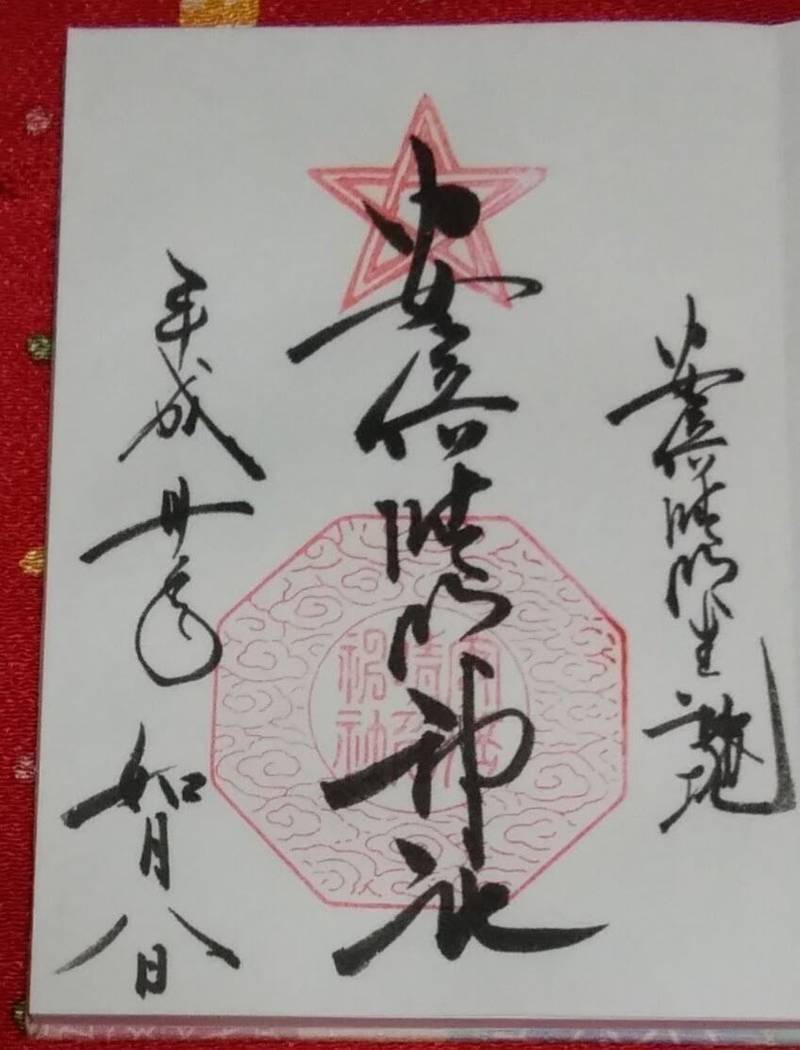 安倍晴明生誕地
安倍晴明神社
平成廿
如月
八日